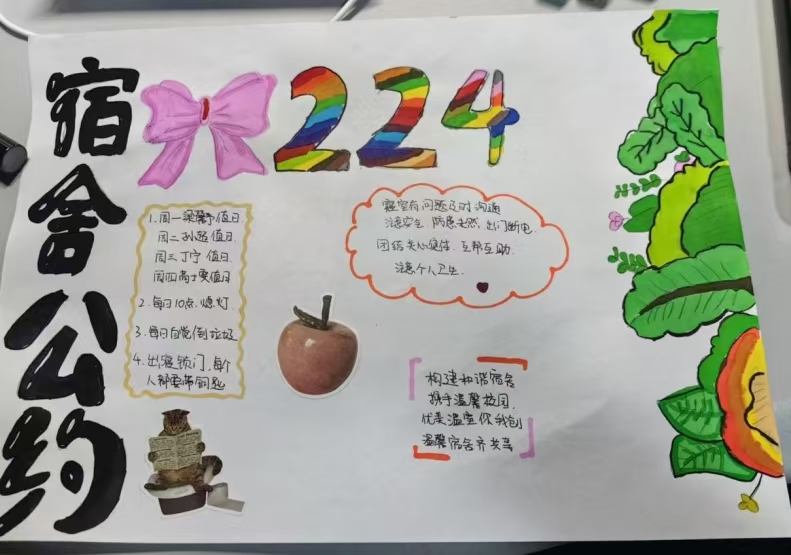 宿舍公约
224
1.周一梁馨予值日
周二孙越值日
周三丁宁值日
周四高士雯值日
2.每日10点熄灯
3.每日自觉倒垃圾
4.出寝锁门,每个
人都要带钥匙
寝室有问题及时沟通
注意安全,防患未然,出门断电.
团结关心集体,互帮互助.
注意个人卫生.
构建和谐宿舍
携手温馨校园.
优美温室你我创
温馨宿舍齐共享